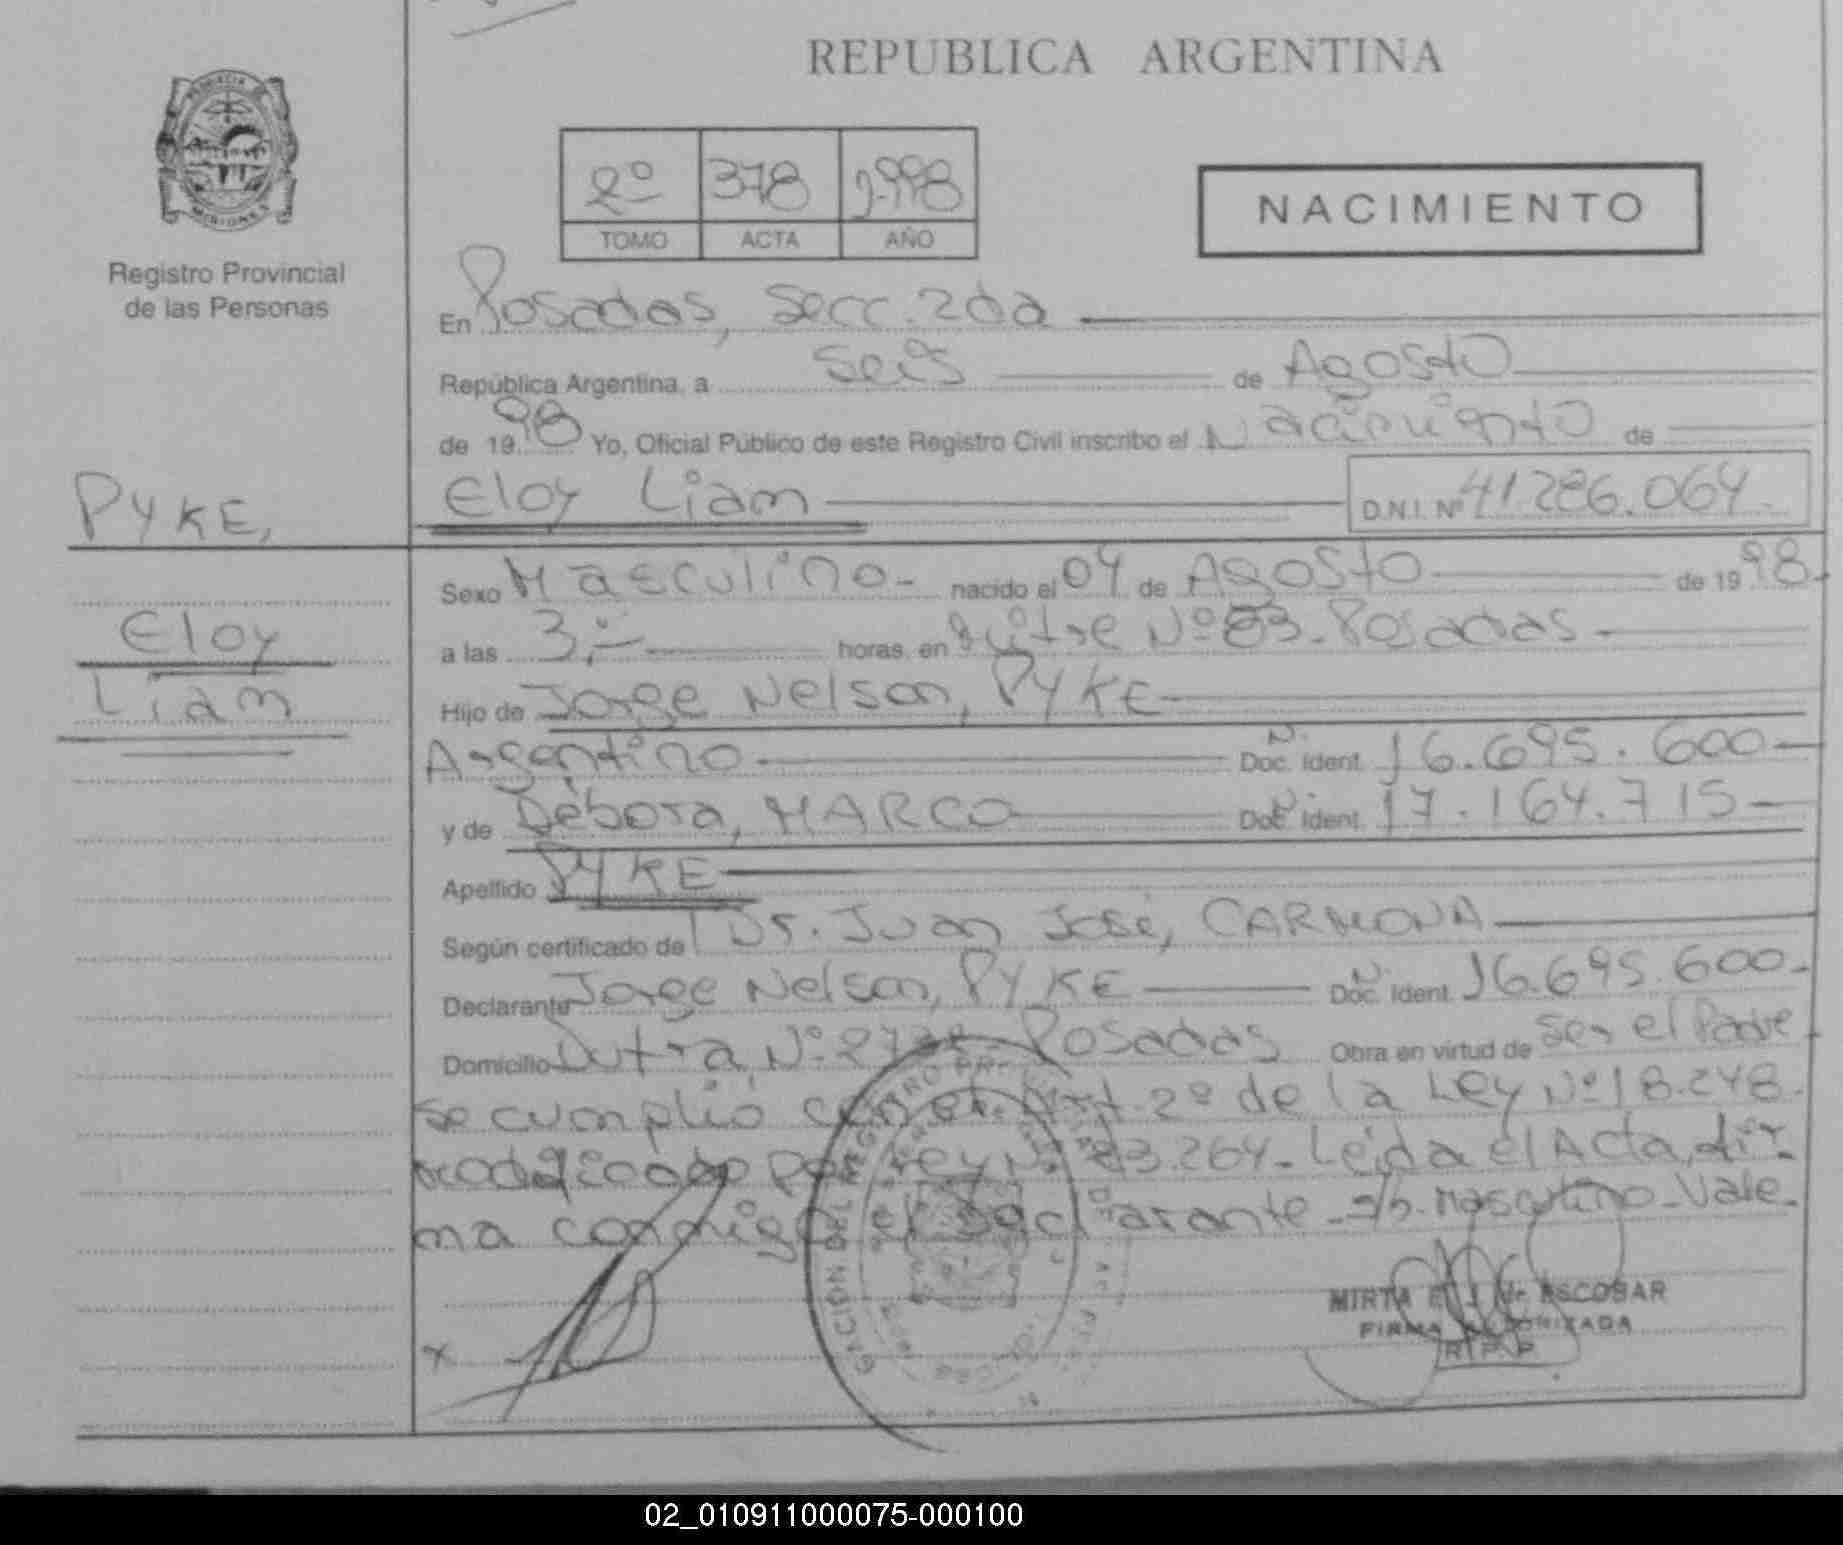 REPUBLICA ARGENTINA
PROVINCIA
MISIONES
Registro Provincial
de las Personas
2º 378 1.998
TOMO ACTA AÑO
NACIMIENTO
En Posadas, Secc. 2da
República Argentina, a seis de Agosto
de 1998 Yo, Oficial Público de este Registro Civil inscribo el Nacimiento de
PYKE,
Eloy Liam D.N.I. Nº 41.286.064.
Eloy
Liam
Sexo Masculino.- nacido el 04 de Agosto de 1998.
a las 3,- horas, en Mitre Nº 83. Posadas.
Hijo de Jorge Nelson, PYKE
Argentino Doc. Ident. 16.695.600
y de Débora, MARCO Doc. Ident. 17.164.715
Apellido PYKE
Según certificado de Dr. Juan José, CARMONA
Declarante Jorge Nelson, PYKE Doc. Ident. 16.695.600.
Domicilio Dutra, Nº Posadas Obra en virtud de Ser el Padre.
Se cumplió con el Art. 2º de la Ley Nº 18.248.
modificado por Ley Nº 23.264. Leída el Acta, fir-
ma conmigo el Declarante - S/b. Masculino - Vale.
x
MIRTA ESCOBAR
FIRMA AUTORIZADA
R.P.P.
02_010911000075-000100